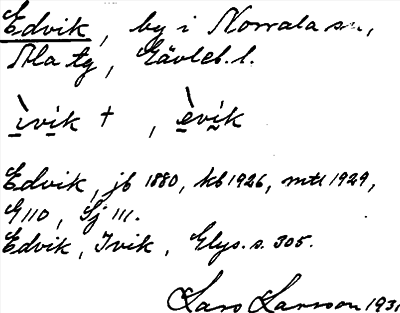 Edvik, by i Norrala sn,
Ala tg, Gävleb. l.
ìvik +, èvik
Edvik, jb 1880, kb 1926, mtl 1929,
G 110, Sj 111.
Edvik, Ivik, Glys. s. 305.
Lars Larsson 1931